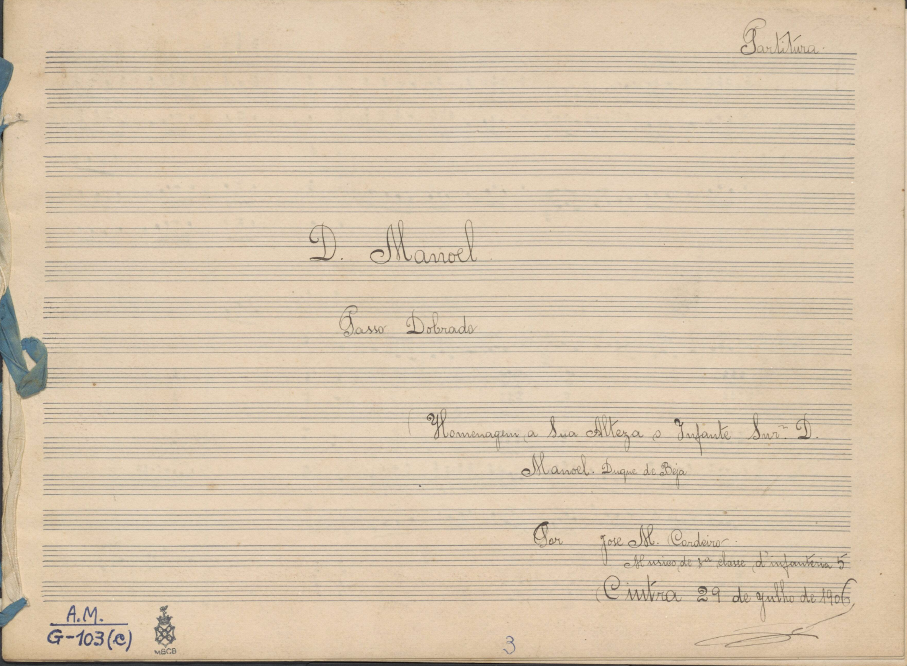 Partitura.
D. Manoel
Passo Dobrado
(Homenagem, a Sua Alteza, o Infante Snr. D.
Manoel. Duque de Beja
Por José M. Cordeiro.
Musico, de classe, d'infanteria 5
Cintra 29 de Julho de 1906
A.M.
G-103(c)
MBCB
3